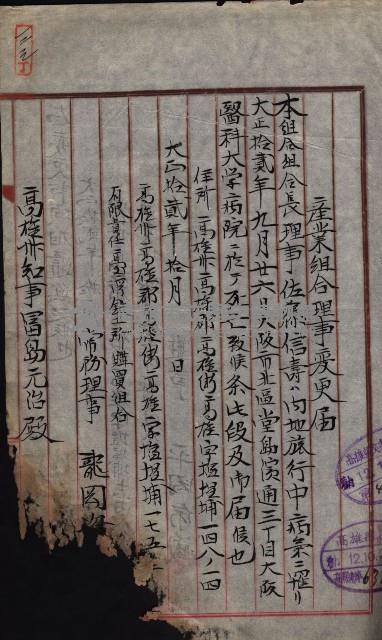 産業組合理事変更届
本組合組合長理事佐藤信壽内地旅行中病氣ニ罹リ
大正拾貳年九月廿六日大阪市北區堂島濱通三丁目大阪
醫科大学病院ニ於テ死亡致候条此段及御届候也
住所 高雄州高雄郡高雄街高雄字塩埕埔一四八ノ一四
大正拾貳年拾月 日
高雄州高雄郡高雄街高雄字塩埕埔一七五
有限責任高雄 購買組合
常務理事 龍岡
高雄州知事富島元治殿